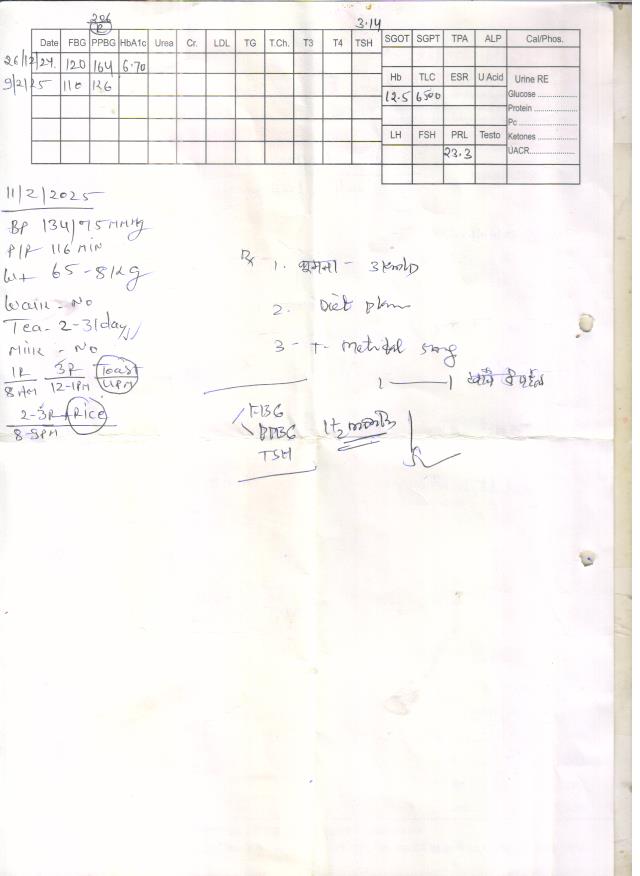 206
R
3.14
Date FBG PPBG HbA1c Urea Cr. LDL TG T.Ch. T3 T4 TSH
26/12/24 120 164 6.70
9/2/25 110 136
SGOT SGPT TPA ALP Cal/Phos.
Hb TLC ESR U Acid Urine RE
12.5 6500
Glucose ..................
Protein ..................
Pc ..................
LH FSH PRL Testo Ketones ..................
UACR..................
23.3
11/2/2025
BP 134/75 MMHg
P/R 116 MIN
Wt 65-8 Kg
Walk - No
Tea - 2-3/day
Milk - No
1R 3R Toast
8AM 12-1PM 4PM
2-3R + Rice
8-9PM
Rx 1. घूमना - 3 km/D
2. Diet plan
3 - T.
1 ——— 1
FBG
PPBG
TSH